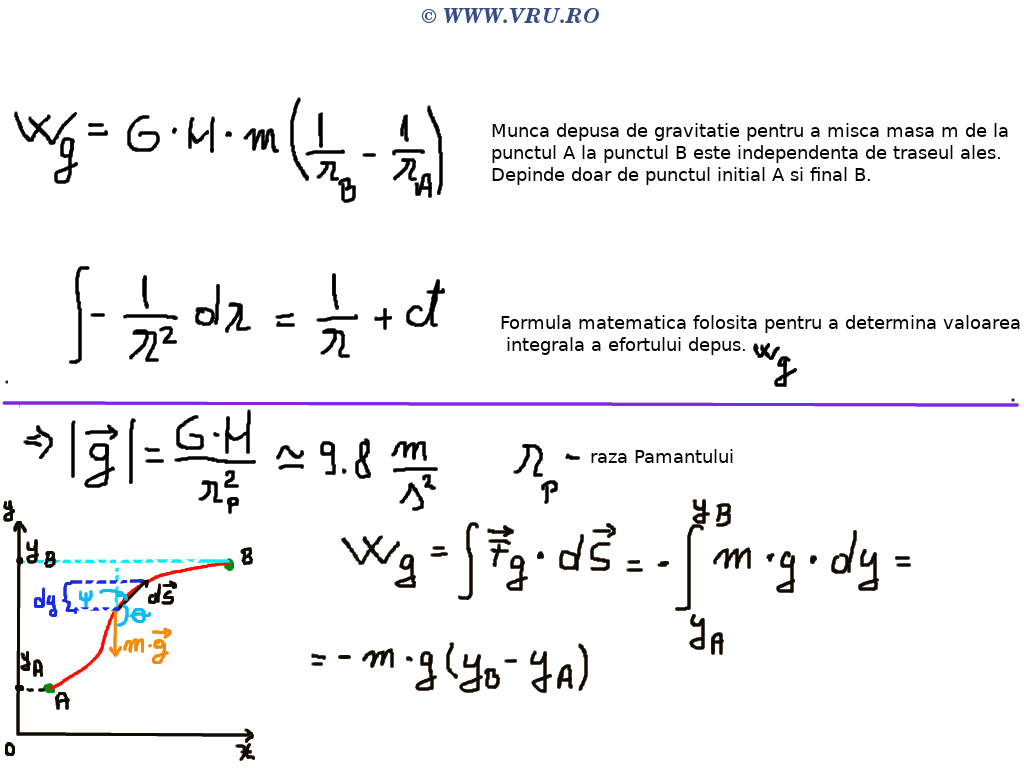 © WWW.VRU.RO
W_g = G · M · m (1/r_B - 1/r_A)
Munca depusa de gravitatie pentru a misca masa m de la
punctul A la punctul B este independenta de traseul ales.
Depinde doar de punctul initial A si final B.
∫ - 1/r² dr = 1/r + ct
Formula matematica folosita pentru a determina valoarea
integrala a efortului depus. W_g
⇒ |g⃗| = G·M/r_P² ≃ 9.8 m/s²
r_P - raza Pamantului
y
y_B
B
dy { ψ ds⃗
θ
m·g⃗
y_A
A
0
x
W_g = ∫ F⃗_g · dS⃗ = - ∫_{y_A}^{y_B} m · g · dy =
= - m · g (y_B - y_A)